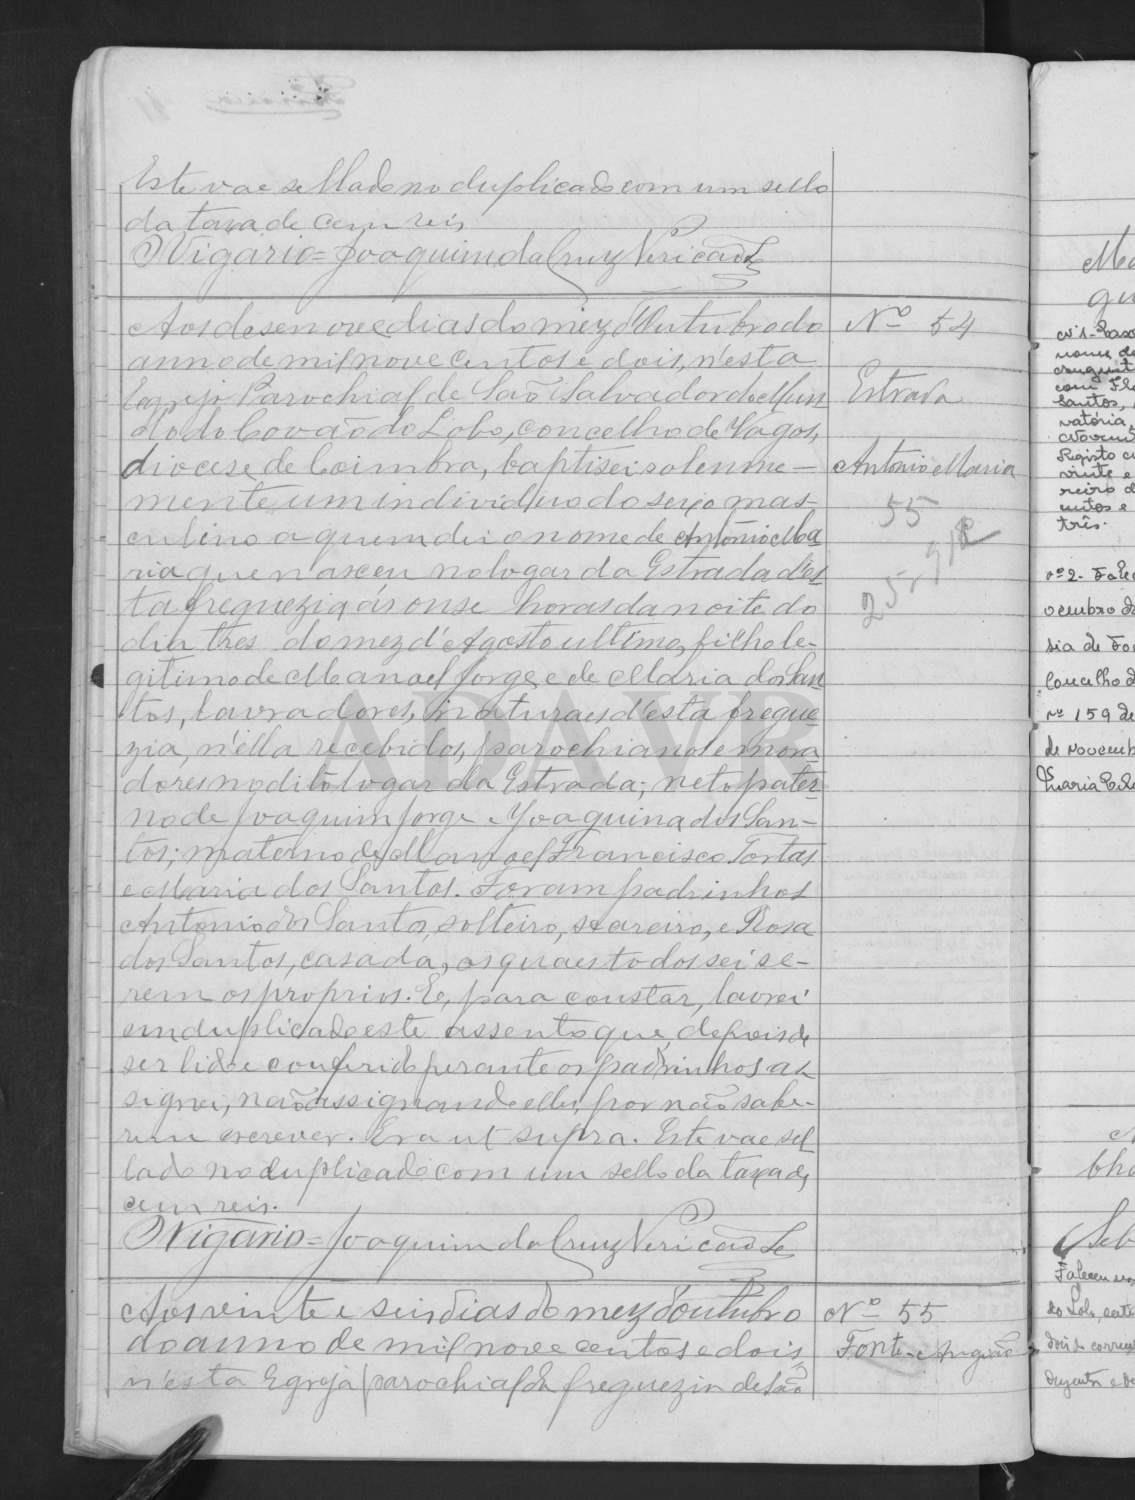 Este vae sellado no duplicado com um sello
da taxa de cem reis
O Vigario = Joaquim da Cruz
Aos desenove dias do mez d'Outubro do
anno de mil nove centos e dois, n'esta
Egreja Parochial de São Salvador do Mun
do do Covão do Lobo, concelho de Vagos,
diocese de Coimbra, baptisei solemne-
mente um individuo do sexo mas-
culino a quem dei o nome de Antonio Ma
ria que nasceu no logar da Estrada d'es
ta freguezia ás onse horas da noite do
dia tres do mez d'Agosto ultimo, filho le-
gitimo de Manoel Jorge e de Maria dos San
tos, lavradores, naturaes d'esta fregue
zia, n'ella recebidos, parochianos e mora
dores no dito logar da Estrada; neto pater
no de Joaquim Jorge e Joaquina dos San-
tos; materno de Manoel Francisco Tortas
e Maria dos Santos. Foram padrinhos
Antonio dos Santos, solteiro, seareiro, e Rosa
dos Santos, casada, os quaes todos sei se-
rem os proprios. E, para constar, lavrei
em duplicado este assento que, depois de
ser lido e conferido perante os padrinhos as
signei, não assignando elles, por não sabe-
rem escrever. Era ut supra. Este vae sel
lado no duplicado com um sello da taxa de
cem reis.
O Vigario = Joaquim da Cruz
Aos vinte e seis dias do mez d'Outubro
do anno de mil nove centos e dois,
n'esta Egreja parochial da freguezia de São
Nº 54
Estrada
Antonio Maria
55
Nº 55
Fonte
nº 159 de
de Novemb
Maria
três.
ADAVR